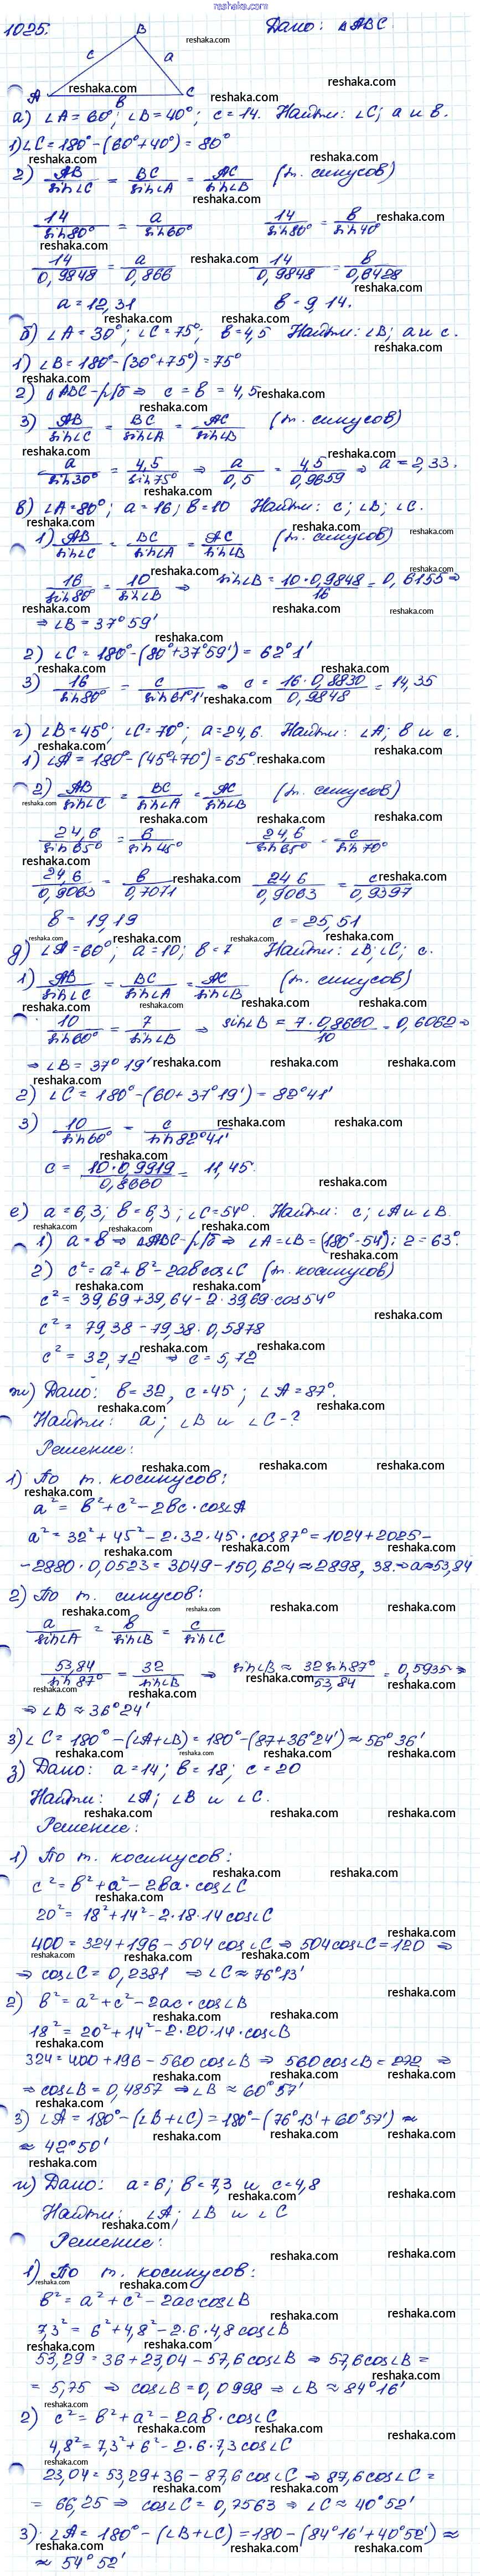 reshalka.com
1025.
Дано: △ABC.
B
c a
A C
в
а) ∠A = 60°; ∠B = 40°; c = 14. Найти: ∠C; a и в.
1) ∠C = 180° - (60° + 40°) = 80°
2) AB/sin∠C = BC/sin∠A = AC/sin∠B (т. синусов)
14/sin80° = a/sin60° 14/sin80° = в/sin40°
14/0,9848 = a/0,866 14/0,9848 = в/0,6428
a = 12,31 в = 9,14.
б) ∠A = 30°; ∠C = 75°; в = 4,5 Найти: ∠B; a и c.
1) ∠B = 180° - (30° + 75°) = 75°
2) △ABC - р/б ⇒ c = в = 4,5
3) AB/sin∠C = BC/sin∠A = AC/sin∠B (т. синусов)
a/sin30° = 4,5/sin75° ⇒ a/0,5 = 4,5/0,9659 ⇒ a = 2,33.
в) ∠A = 80°; a = 16; в = 10 Найти: c; ∠B; ∠C.
1) AB/sin∠C = BC/sin∠A = AC/sin∠B (т. синусов)
16/sin80° = 10/sin∠B ⇒ sin∠B = 10·0,9848/16 = 0,6155 ⇒
⇒ ∠B = 37°59'
2) ∠C = 180° - (80° + 37°59') = 62°1'
3) 16/sin80° = c/sin61°1' ⇒ c = 16·0,8830/0,9848 = 14,35
г) ∠B = 45°; ∠C = 70°; a = 24,6. Найти: ∠A; в и c.
1) ∠A = 180° - (45° + 70°) = 65°
2) AB/sin∠C = BC/sin∠A = AC/sin∠B (т. синусов)
24,6/sin65° = в/sin45° 24,6/sin65° = c/sin70°
24,6/0,9063 = в/0,7071 24,6/0,9063 = c/0,9397
в = 19,19 c = 25,51
д) ∠A = 60°; a = 10; в = 7 Найти: ∠B; ∠C; c.
1) AB/sin∠C = BC/sin∠A = AC/sin∠B (т. синусов)
10/sin60° = 7/sin∠B ⇒ sin∠B = 7·0,8660/10 = 0,6062 ⇒
⇒ ∠B = 37°19'
2) ∠C = 180° - (60 + 37°19') = 82°41'
3) 10/sin60° = c/sin82°41'
c = 10·0,9919/0,8660 = 11,45.
е) a = 6,3; в = 6,3; ∠C = 54°. Найти: c; ∠A и ∠B.
1) a = в ⇒ △ABC - р/б ⇒ ∠A = ∠B = (180° - 54°) : 2 = 63°.
2) c² = a² + в² - 2ав cos∠C (т. косинусов)
c² = 39,69 + 39,64 - 2·39,69·cos54°
c² = 79,38 - 79,38·0,5878
c² = 32,72 ⇒ c = 5,72
ж) Дано: в = 32, c = 45; ∠A = 87°.
Найти: a; ∠B и ∠C - ?
Решение:
1) По т. косинусов:
a² = в² + c² - 2вc·cos∠A
a² = 32² + 45² - 2·32·45·cos87° = 1024 + 2025 -
- 2880·0,0523 = 3049 - 150,624 ≈ 2898,38 ⇒ a ≈ 53,84
2) По т. синусов:
a/sin∠A = в/sin∠B = c/sin∠C
53,84/sin87° = 32/sin∠B ⇒ sin∠B ≈ 32 sin87°/53,84 = 0,5935 ⇒
⇒ ∠B ≈ 36°24'
3) ∠C = 180° - (∠A + ∠B) = 180° - (87 + 36°24') ≈ 56°36'
з) Дано: a = 14; в = 18; c = 20
Найти: ∠A; ∠B и ∠C.
Решение:
1) По т. косинусов:
c² = в² + a² - 2вa·cos∠C
20² = 18² + 14² - 2·18·14 cos∠C
400 = 324 + 196 - 504 cos∠C ⇒ 504 cos∠C = 120 ⇒
⇒ cos∠C = 0,2381 ⇒ ∠C ≈ 76°13'
2) в² = a² + c² - 2ac·cos∠B
18² = 20² + 14² - 2·20·14·cos∠B
324 = 400 + 196 - 560 cos∠B ⇒ 560 cos∠B = 272 ⇒
⇒ cos∠B = 0,4857 ⇒ ∠B ≈ 60°57'
3) ∠A = 180° - (∠B + ∠C) = 180° - (76°13' + 60°57') ≈
≈ 42°50'
и) Дано: a = 6; в = 7,3 и c = 4,8
Найти: ∠A; ∠B и ∠C
Решение:
1) По т. косинусов:
в² = a² + c² - 2ac·cos∠B
7,3² = 6² + 4,8² - 2·6·4,8 cos∠B
53,29 = 36 + 23,04 - 57,6 cos∠B ⇒ 57,6 cos∠B =
= 5,75 ⇒ cos∠B = 0,0998 ⇒ ∠B ≈ 84°16'
2) c² = в² + a² - 2ав·cos∠C
4,8² = 7,3² + 6² - 2·6·7,3 cos∠C
23,04 = 53,29 + 36 - 87,6 cos∠C ⇒ 87,6 cos∠C =
= 66,25 ⇒ cos∠C = 0,7563 ⇒ ∠C ≈ 40°52'
3) ∠A = 180° - (∠B + ∠C) = 180 - (84°16' + 40°52') ≈
≈ 54°52'